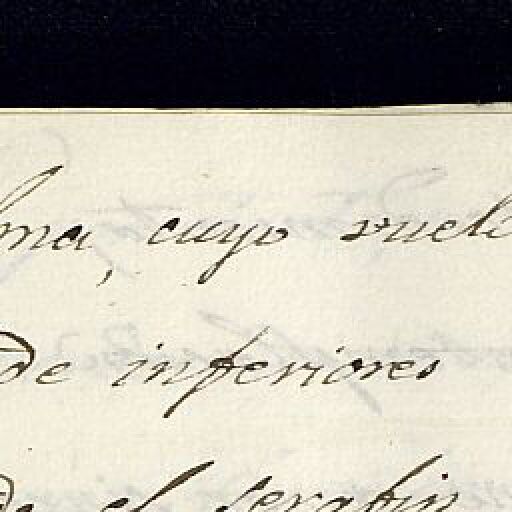 lma, cuyo vuelo
de inferiores
de el serafin